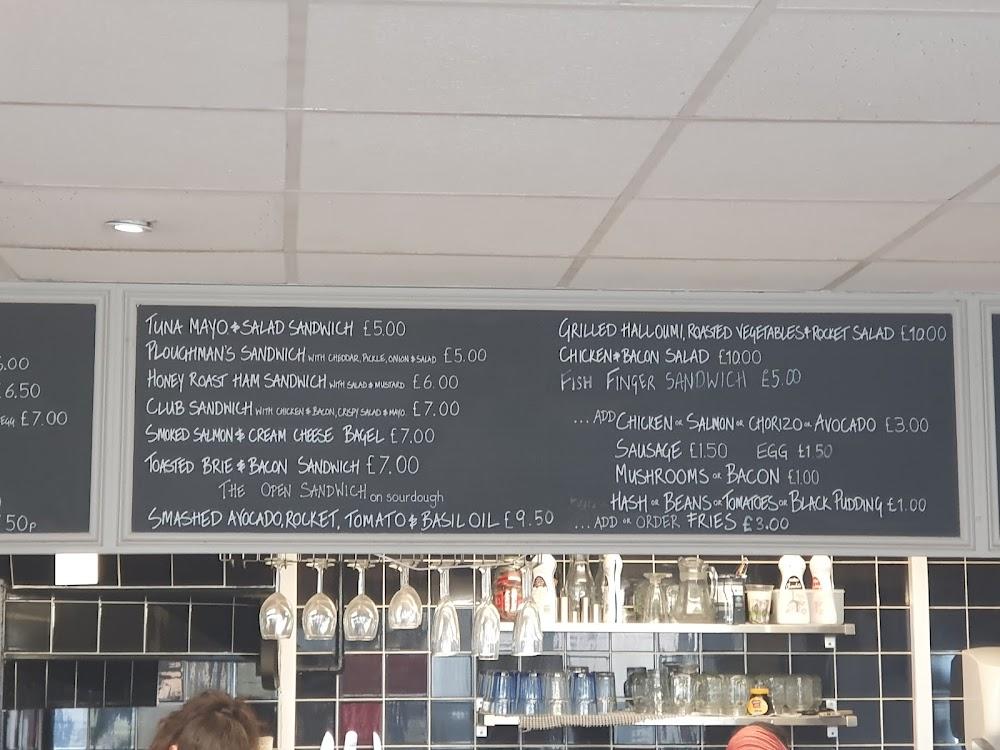 6.00
£6.50
EGG £7.00
50p
TUNA MAYO & SALAD SANDWICH £5.00
PLOUGHMAN'S SANDWICH WITH CHEDDAR, PICKLE, ONION & SALAD £5.00
HONEY ROAST HAM SANDWICH WITH SALAD & MUSTARD £6.00
CLUB SANDWICH WITH CHICKEN & BACON, CRISPY SALAD & MAYO. £7.00
SMOKED SALMON & CREAM CHEESE BAGEL £7.00
TOASTED BRIE & BACON SANDWICH £7.00
THE OPEN SANDWICH on sourdough
SMASHED AVOCADO, ROCKET, TOMATO & BASIL OIL £9.50
GRILLED HALLOUMI, ROASTED VEGETABLES & ROCKET SALAD £10.00
CHICKEN & BACON SALAD £10.00
FISH FINGER SANDWICH £5.00
...ADD CHICKEN OR SALMON OR CHORIZO OR AVOCADO £3.00
SAUSAGE £1.50 EGG £1.50
MUSHROOMS OR BACON £1.00
HASH OR BEANS OR TOMATOES OR BLACK PUDDING £1.00
...ADD OR ORDER FRIES £3.00